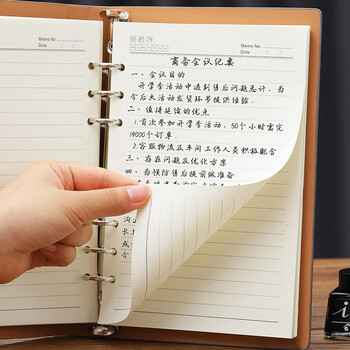 Memo No.
Date
Memo No.
Date
商务会议纪要
一、会议目的
开学季活动中遇到售后问题总计，为
今后大活动发货环节提供经验.
二、值得延续的优点
1.首次参加开学季活动，50个小时需完
19000个订单.
2.客服物流及车间工作人员积极配合
三、存在问题及优化方案
四、为预防售后提前做准备
沟
长
成
个